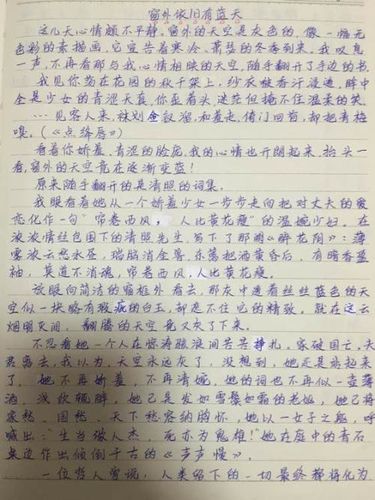 窗外依旧有蓝天
这几天心情颇不平静。窗外的天空是灰色的,像一幅无
色彩的素描画,它宣告着寒冷、萧瑟的冬季到来。我叹息
一声,不再看那与我心情相映的天空,随手翻开了手边的书。
我见你荡在花园的秋千架上,纱衣被香汗浸透,眸中
全是少女的青涩天真,你歪着头,迷茫但掩不住温柔的笑。
…见客人来,袜刬金钗溜,和羞走,倚门回首,却把青梅
嗅。(《点绛唇》)
看着你娇羞、青涩的脸庞,我的心情也开朗起来,抬头一
看,窗外的天空竟在逐渐变蓝!
原来随手翻开的是清照的词集。
我眼看着她从一个娇羞少女一步步走向把对丈夫的爱
恋化作一句"帘卷西风,人比黄花瘦"的温婉少妇。在
浓浓情丝包围下的清照先生,写下了那阕《醉花阴》:薄
雾浓云愁永昼,瑞脑消金兽。东篱把酒黄昏后,有暗香盈
袖,莫道不消魂,帘卷西风,人比黄花瘦。
放眼向简洁的窗框外看去,那灰中透着丝丝蓝色的天
空似一块略有瑕疵的白玉,却遮不住它的精致。就在这云
烟明灭间,翻腾的天空竟又灰了下来。
不忍看她一个人在惊涛骇浪间苦苦挣扎。家破国亡,夫
君离去,我以为,天空永远灰了,没想到,她还是站起来
了。她不再娇羞,不再清婉,她的词也不再似一壶薄
酒,浅饮辄醉,她已是发如雪鬓如霜的老妪,她已将
家愁、国愁、天下愁容纳胸怀,她以一女子之躯,呼
喊出:"生当做人杰,死亦为鬼雄!"她在庭中的青石
桌边作出倾倒千古的《声声慢》。
一位哲人曾说,人类留下的一切最终都将化为